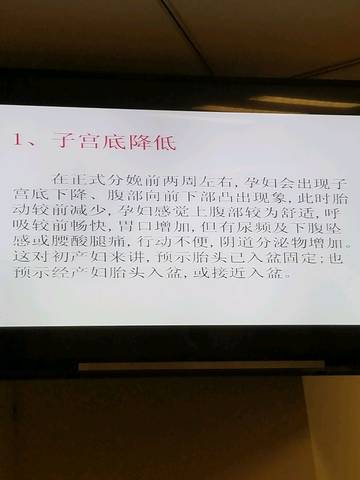 1、子宫底降低
在正式分娩前两周左右,孕妇会出现子
宫底下降、腹部向前下部凸出现象,此时胎
动较前减少,孕妇感觉上腹部较为舒适,呼
吸较前畅快,胃口增加,但有尿频及下腹坠
感或腰酸腿痛,行动不便,阴道分泌物增加。
这对初产妇来讲,预示胎头已入盆固定;也
预示经产妇胎头入盆,或接近入盆。